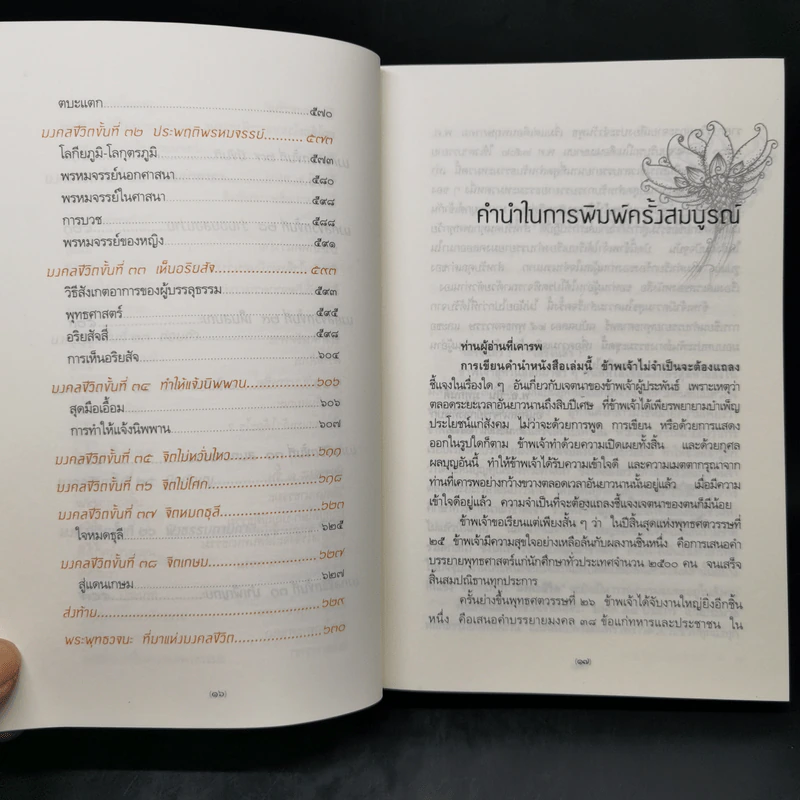 ตบะแตก ๕๗๐
มงคลชีวิตขั้นที่ ๓๒ ประพฤติพรหมจรรย์ ๕๗๓
โลกียภูมิ-โลกุตรภูมิ ๕๗๓
พรหมจรรย์นอกศาสนา ๕๘๐
พรหมจรรย์ในศาสนา
การบวช ๕๘๘
พรหมจรรย์ของหญิง ๕๙๑
มงคลชีวิตขั้นที่ ๓๓ เห็นอริยสัจ ๕๙๓
วิธีสังเกตอาการของผู้บรรลุธรรม ๕๙๓
พุทธศาสตร์ ๕๙๕
อริยสัจสี่ ๕๙๘
การเห็นอริยสัจ ๖๐๔
มงคลชีวิตขั้นที่ ๓๔ ทำให้แจ้งนิพพาน ๖๐๖
สุดมือเอื้อม ๖๐๖
การทำให้แจ้งนิพพาน ๖๐๗
มงคลชีวิตขั้นที่ ๓๕ จิตไม่หวั่นไหว ๖๑๑
มงคลชีวิตขั้นที่ ๓๖ จิตไม่โศก ๖๑๘
มงคลชีวิตขั้นที่ ๓๗ จิตหมดธุลี ๖๒๓
ใจหมดธุลี ๖๒๕
มงคลชีวิตขั้นที่ ๓๘ จิตเกษม ๖๒๗
สู่แดนเกษม ๖๒๗
ส่งท้าย ๖๒๙
พระพุทธวจนะ ที่มาแห่งมงคลชีวิต ๖๓๐
(๑๖)
คำนำในการพิมพ์ครั้งสมบูรณ์
ท่านผู้อ่านที่เคารพ
การเขียนคำนำหนังสือเล่มนี้ ข้าพเจ้าไม่จำเป็นจะต้องแถลง
ชี้แจงในเรื่องใด ๆ อันเกี่ยวกับเจตนาของข้าพเจ้าผู้ประพันธ์ เพราะเหตุว่า
ตลอดระยะเวลาอันยาวนานถึงสิบปีเศษ ที่ข้าพเจ้าได้เพียรพยายามบำเพ็ญ
ประโยชน์แก่สังคม ไม่ว่าจะด้วยการพูด การเขียน หรือด้วยการแสดง
ออกในรูปใดก็ตาม ข้าพเจ้าทำด้วยความเปิดเผยทั้งสิ้น และด้วยกุศล
ผลบุญอันนี้ ทำให้ข้าพเจ้าได้รับความเข้าใจดี และความเมตตากรุณาจาก
ท่านที่เคารพอย่างกว้างขวางตลอดเวลาอันยาวนานนั้นอยู่แล้ว เมื่อมีความ
เข้าใจดีอยู่แล้ว ความจำเป็นที่จะต้องแถลงชี้แจงเจตนาของตนก็มีน้อย
ข้าพเจ้าขอเรียนแต่เพียงสั้น ๆ ว่า ในปีสิ้นสุดแห่งพุทธศตวรรษที่
๒๕ ข้าพเจ้ามีความสุขใจอย่างเหลือล้นกับผลงานชิ้นหนึ่ง คือการเสนอคำ
บรรยายพุทธศาสตร์แก่นักศึกษาทั่วประเทศจำนวน ๒๕๐๐ คน จนเสร็จ
สิ้นสมปณิธานทุกประการ
ครั้นย่างขึ้นพุทธศตวรรษที่ ๒๖ ข้าพเจ้าได้จับงานใหญ่ยิ่งอีกชิ้น
หนึ่ง คือเสนอคำบรรยายมงคล ๓๘ ข้อแก่ทหารและประชาชน ใน
(๑๗)